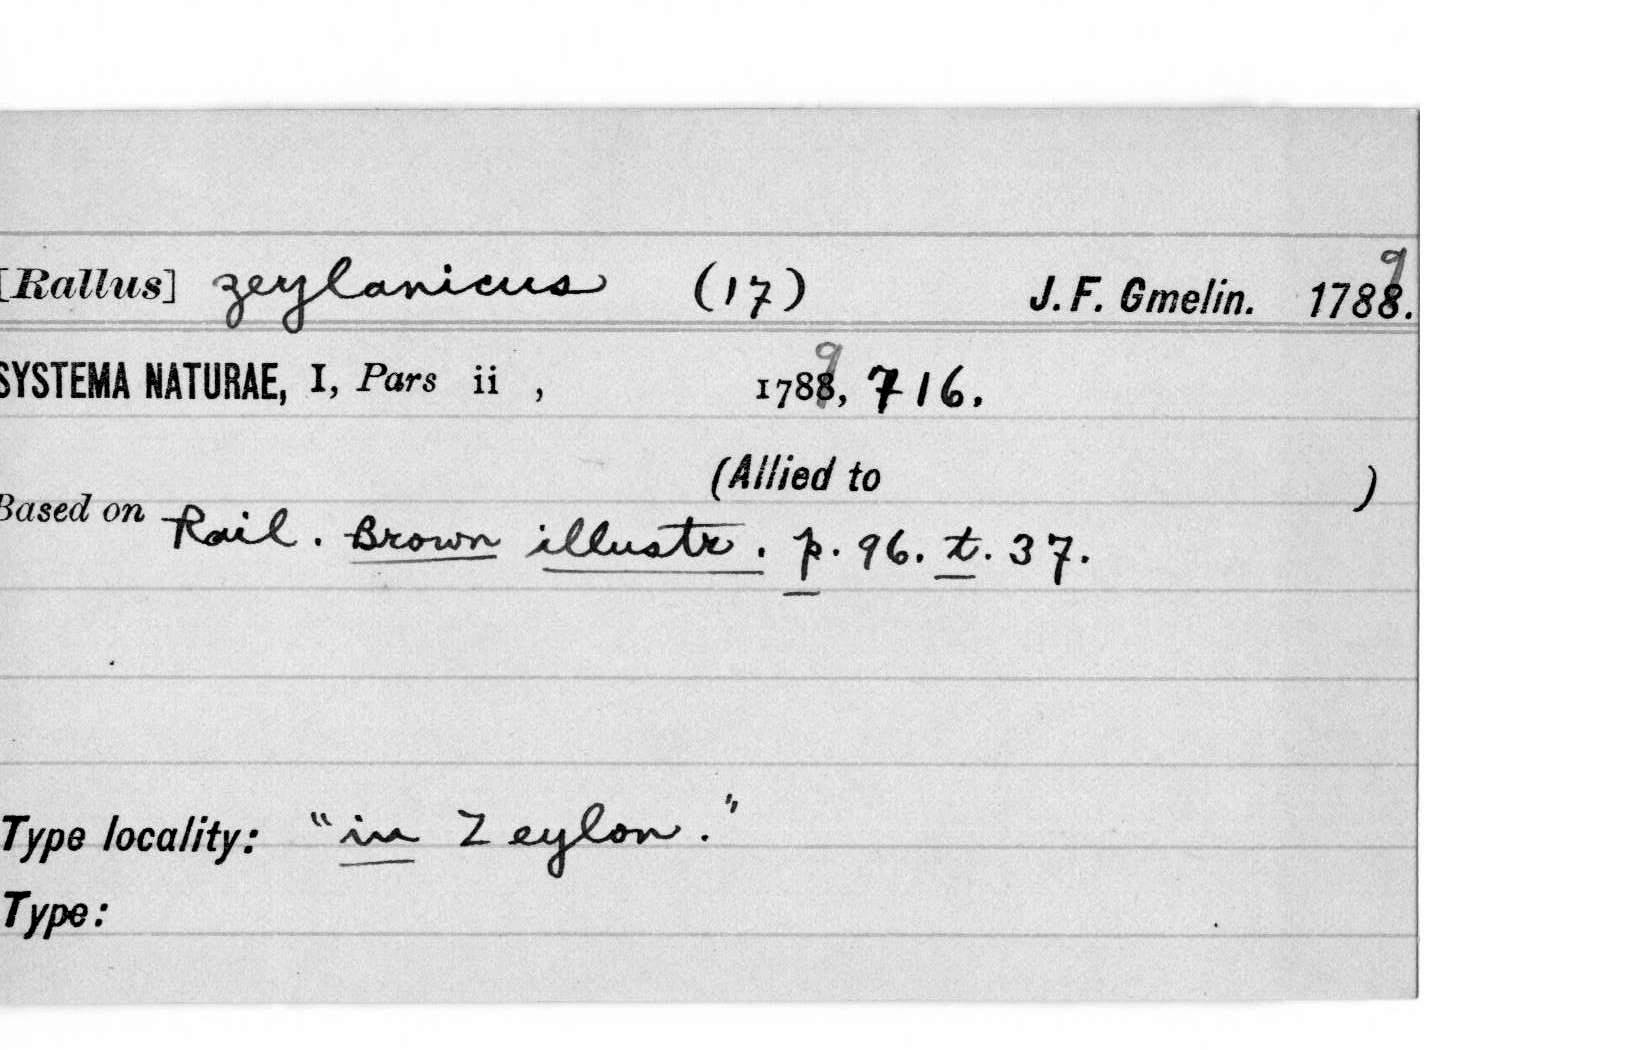 [Rallus] zeylanicus (17) J. F. Gmelin. 1789.
SYSTEMA NATURAE, I, Pars ii , 1789, 716.
(Allied to )
Based on Rail. Brown illustr. p. 96. t. 37.
Type locality: "in Zeylon."
Type: